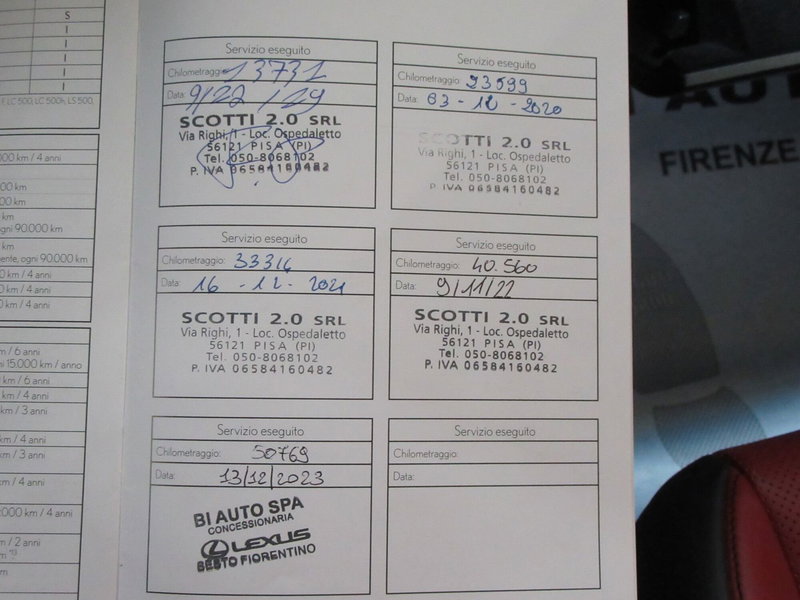 S
I
I
I
I
I
LC 500, LC 500h, LS 500,
000 km / 4 anni
000 km
000 km
km
ogni 90.000 km
km
ogni 90.000 km
0 km / 4 anni
0 km / 4 anni
0 km / 4 anni
km / 6 anni
15.000 km / anno
km / 6 anni
km / 4 anni
km / 3 anni
km / 4 anni
km / 3 anni
km / 4 anni
000 km / 4 anni
/ 2 anni
km
Servizio eseguito
Chilometraggio: 13731
Data:
SCOTTI 2.0 SRL
Via Righi, 1 - Loc. Ospedaletto
56121 PISA (PI)
Tel. 050-8068102
P. IVA 06584160482
Servizio eseguito
Chilometraggio: 23599
Data: 03 - 12 - 2020
SCOTTI 2.0 SRL
Via Righi, 1 - Loc. Ospedaletto
56121 PISA (PI)
Tel. 050-8068102
P. IVA 06584160482
Servizio eseguito
Chilometraggio: 33316
Data: 16 - 12 - 2021
SCOTTI 2.0 SRL
Via Righi, 1 - Loc. Ospedaletto
56121 PISA (PI)
Tel. 050-8068102
P. IVA 06584160482
Servizio eseguito
Chilometraggio: 40.560
Data: 9/11/22
SCOTTI 2.0 SRL
Via Righi, 1 - Loc. Ospedaletto
56121 PISA (PI)
Tel. 050-8068102
P. IVA 06584160482
Servizio eseguito
Chilometraggio: 50769
Data: 13/12/2023
BI AUTO SPA
CONCESSIONARIA
LEXUS
SESTO FIORENTINO
Servizio eseguito
Chilometraggio:
Data:
AUT
FIRENZE